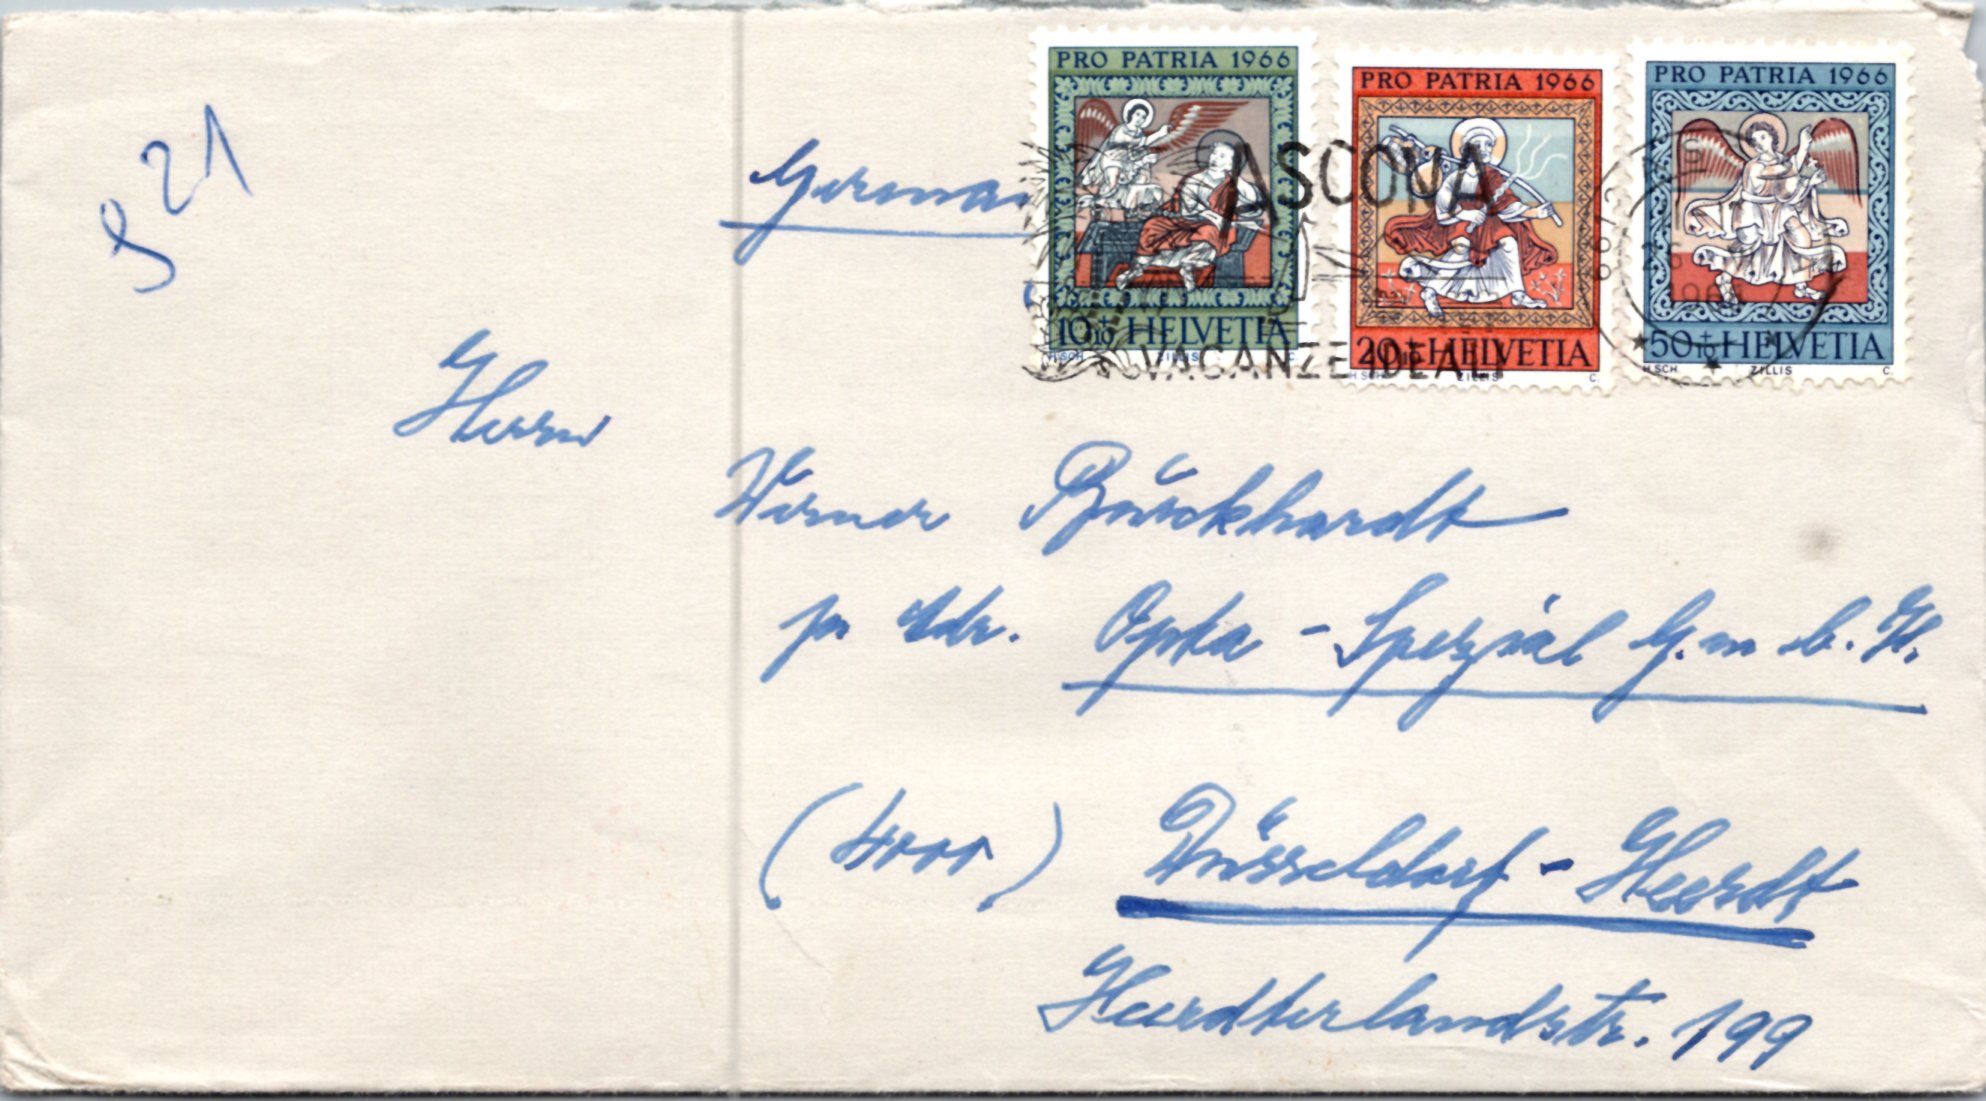 PRO PATRIA 1966
10+10 HELVETIA
H.SCH ZILLIS C.
PRO PATRIA 1966
20+10 HELVETIA
H SCH ZILLIS C.
PRO PATRIA 1966
50+10 HELVETIA
H.SCH ZILLIS C.
ASCONA
VACANZE IDEALI
S 21
Herrn
Werner Bürckhardt
pr Adr. Opta - Spezial G.m.b.H.
(4000) Düsseldorf - Heerdt
Heerdterlandstr. 199